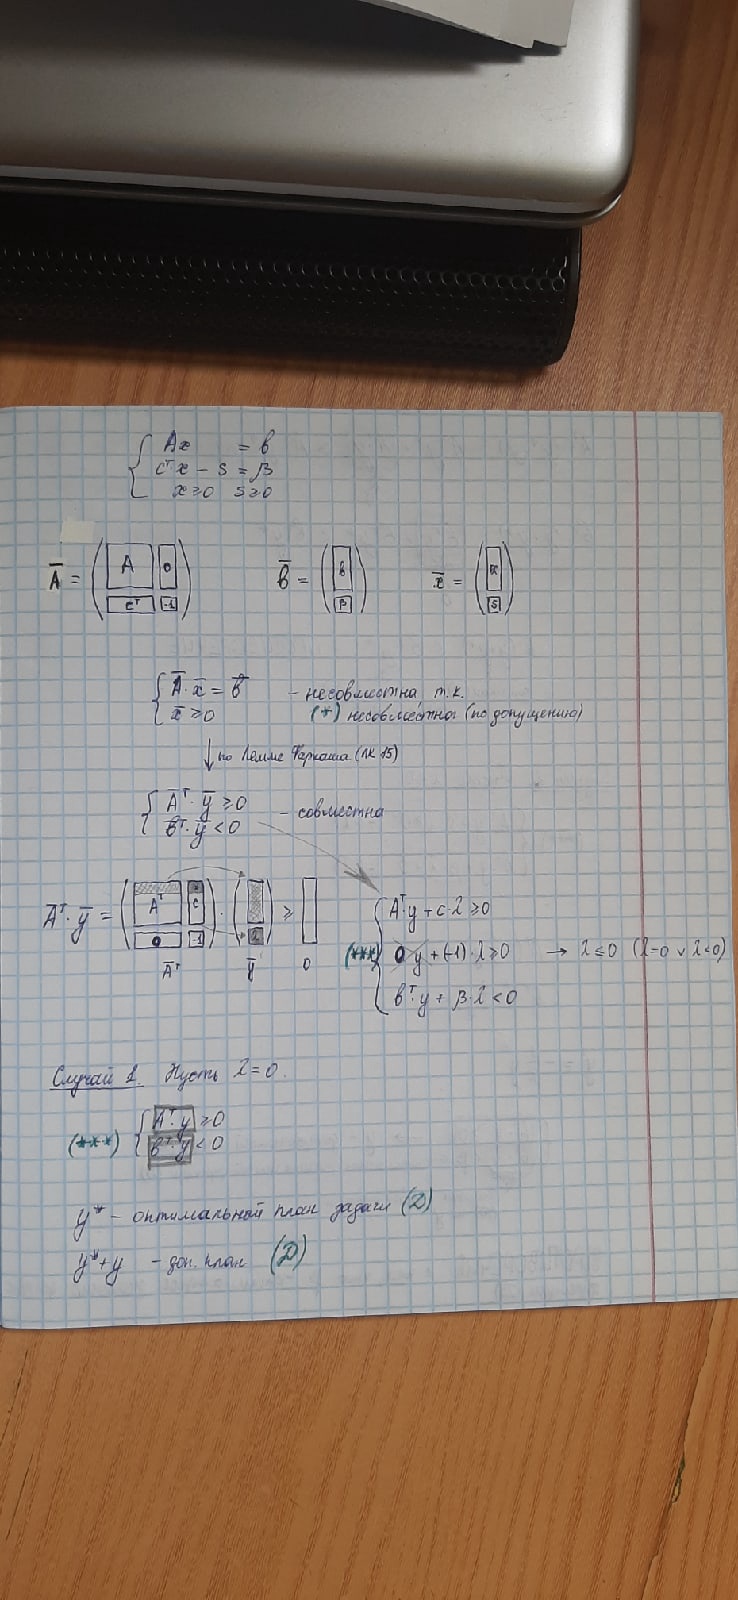 Ax = b
cᵀx - s = β
x ≥ 0 s ≥ 0
Ā = ( A 0 cᵀ -1 ) b̄ = ( b β ) x̄ = ( x s )
Ā · x̄ = b̄ - несовместна т.к.
x̄ ≥ 0 (*) несовместна (по допущению)
↓ по Лемме Фаркаша (ЛК 15)
Āᵀ · ȳ ≥ 0
b̄ᵀ · ȳ < 0 - совместна
Āᵀ · ȳ = ( Aᵀ c 0 -1 ) · ( λ ) ≥
Āᵀ ȳ 0
Aᵀy + c·λ ≥ 0
(***) 0 y + (-1)·λ ≥ 0 → λ ≤ 0 (λ=0 ∨ λ<0)
bᵀy + β·λ < 0
Случай 1. Пусть λ = 0.
Aᵀ·y ≥ 0
(***) bᵀ·y < 0
y* - оптимальной план задачи (D)
y*+y - доп. план (D)